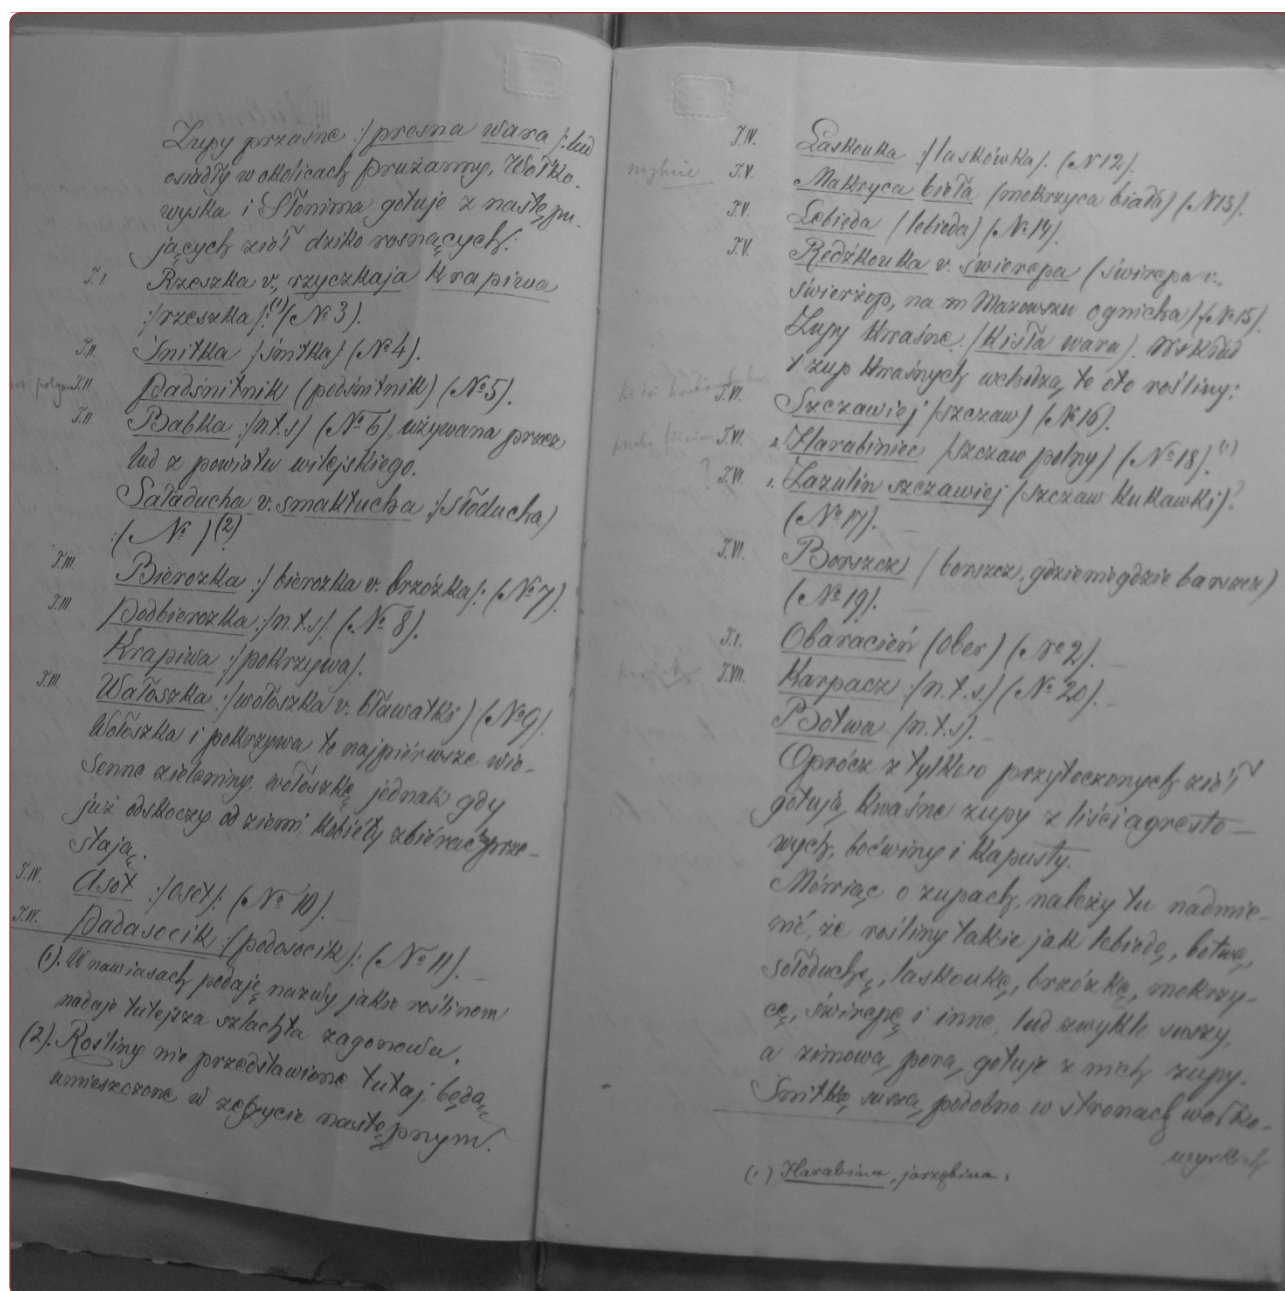 Zupy przaśne :/ presna wara /: lud
osiadły w okolicach Prużanny, Wołko-
wyska i Słonima gotuje z nastę pu-
jących ziół dziko rosnących:
T.I Rzeszka v. rzyczkaja krapiwa
:/rzeszka/: (1) (№ 3).
T.II. Śnitka /śnitka/ (№ 4).
T.II. Padśnitnik (podśnitnik) (№ 5).
T.II Babka :/n.t.s/ (№ 6), używana przez
lud z powiatu wilejskiego.
Saładucha v. smaktucha :/słoducha)
:/ № ) (2)
T.III. Bierozka :/ bierozka v. brzózka/: (№ 7).
T.III. Podbierozka :/n.t.s/. (№ 8).
Krapiwa :/pokrzywa/.
T.III. Wałoszka :/wołoszka v. bławatki) (№ 9).
Wołoszka i pokrzywa to najpiérwsze wio-
senne zieleniny, wołoszkę jednak gdy
już odskoczy od ziemi, kobiéty zbiérać prze-
stają.
T.IV. Asot :/oset/: (№ 10).
T.IV. Padasocik /podosocik/: (№ 11).
(1). W nawiasach podaję nazwy jakie roślinom
nadaje tutejsza szlachta zagonowa.
(2). Rośliny nie przedstawione tutaj będą
umieszczone w zeszycie nastę pnym.
T.IV. Laskouka :/laskówka/. (N 12).
T.V. Makryca bieła (mokrzyca biała) (N 13).
T.V. Lebięda /lebioda) (№ 14).
T.V. Redźkouka v. świerepa (świrepa v.,
świerzop, na m Mazowszu ognicha) (№ 15).
Zupy kwaśne. /Kisła wara/. W skład
zup kwaśnych wchodzą te oto rośliny:
T.VI. Szczawiej /szczaw) (№ 16).
T.VI. 2. Harabiniec /szczaw polny) (№ 18). (1)
? T.VI. 1. Zazulin szczawiej /szczaw kukawki)?
(№ 17).
T.VI. Borszcz / borszcz, gdzieniegdzie barszcz)
(№ 19).
T.I. Obaracień (Ober) (№ 2).
T.VII. Karpacz :/n.t.s.) (№ 20).
Botwa /n.t.s).
Oprócz z tylko przytoczonych ziół
gotują kwaśne zupy z liści agresto-
wych, boćwiny i kapusty.
Mówiąc o zupach, należy tu nadmie-
nić, że rośliny takie jak lebiodę, botwę,
sołoduchę, laskoukę, brzózkę, mokrzy-
cę, świrepę i inne, lud zwykle suszy,
a zimową porą gotuje z nich zupy.
Śnitkę suszą podobno w stronach wołko-
wyskich
(1) Harabina, jarzębina.